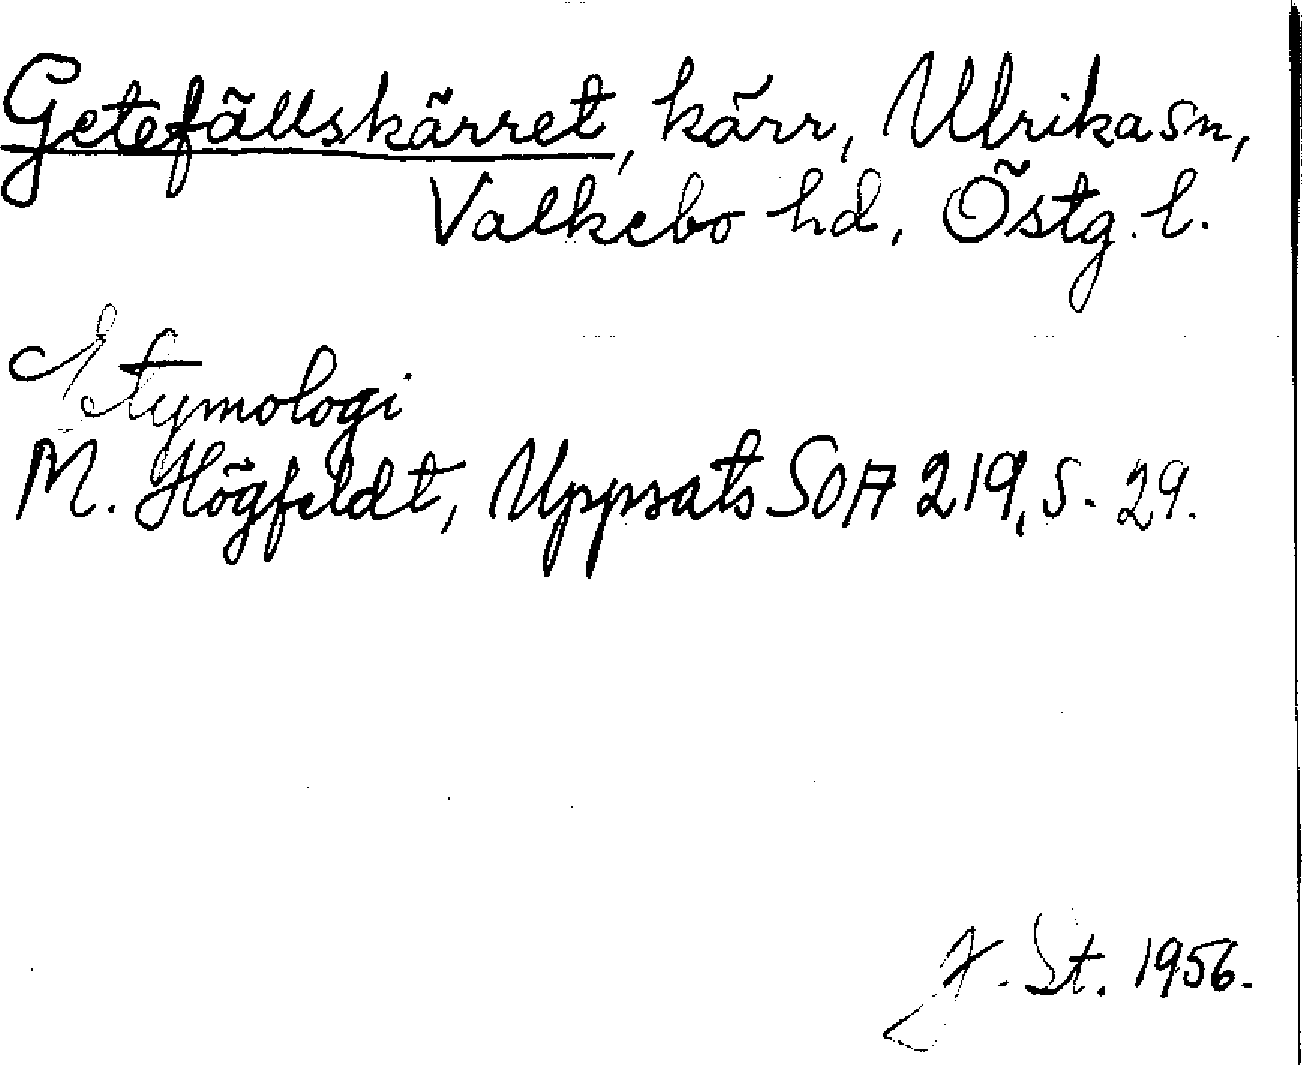 Getefällskärret, kärr, Ulrika sn,
Valkebo hd, Östg. l.
Etymologi
M. Högfeldt, Uppsats SOA 219, s. 29.
J. St. 1956.